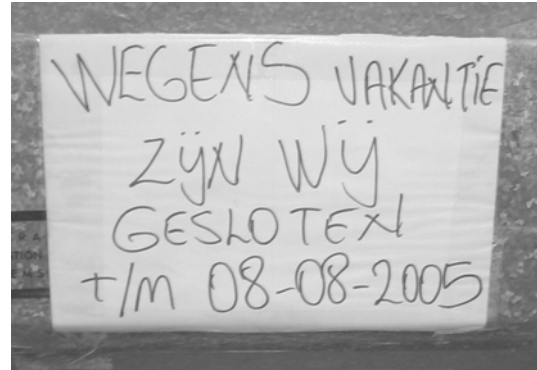 WEGENS VAKANTIE
ZIJN WIJ
GESLOTEN
t/m 08-08-2005